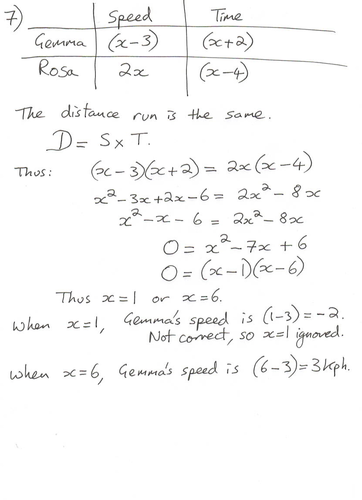 7) Speed Time
Gemma (x-3) (x+2)
Rosa 2x (x-4)
The distance run is the same.
D = S x T.
Thus: (x-3)(x+2) = 2x(x-4)
x²-3x+2x-6 = 2x²-8x
x²-x-6 = 2x²-8x
0 = x²-7x+6
0 = (x-1)(x-6)
Thus x=1 or x=6.
When x=1, Gemma's speed is (1-3)=-2.
Not correct, so x=1 ignored.
When x=6, Gemma's speed is (6-3)=3kph.